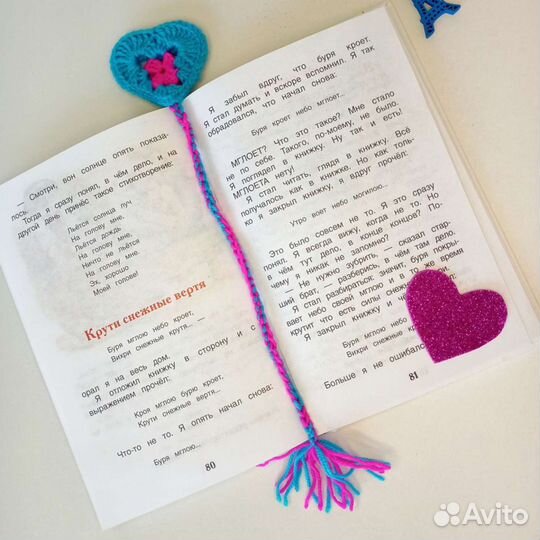 — Смотри, вон солнце опять показа-
лось.
Тогда я сразу понял, в чём дело, и на
другой день принёс такое стихотворение:
Льётся солнца луч
На голову мне,
Льётся дождь
На голову мне,
Ничто не льётся
На голову мне.
Эх, хорошо
Моей голове!
Крути снежные вертя
Буря мглою небо кроет,
Вихри снежные крутя... —
орал я на весь дом.
Я отложил книжку в сторону и с
выражением прочёл:
Кроя мглою бурю кроет,
Крути снежные вертя...
Что-то не то. Я опять начал снова:
Буря мглою...
80
Я забыл вдруг, что буря кроет.
Я стал думать и вскоре вспомнил. Я так
обрадовался, что начал снова:
Буря кроет небо мглоет...
МГЛОЕТ? Что это такое? Мне стало
не по себе. Такого, по-моему, не было.
Я поглядел в книжку. Ну так и есть!
МГЛОЕТА нету!
Я стал читать, глядя в книжку. Всё
получалось как в книжке. Но как толь-
ко я закрыл книжку, я вдруг прочёл:
Утро воет небо могилою...
Это было совсем не то. Я это сразу
понял. Я всегда вижу, когда не то. Но
в чём тут дело, в конце концов? По-
чему я никак не запомню?
— Не нужно зубрить, — сказал стар-
ший брат, — разберись, в чём там дело.
Я стал разбираться: значит, буря покры-
вает небо своей мглою и в то же время
крутит что есть силы снежные
Я закрыл книжку и
Буря мглою неб
Вихри снежны
Больше я не ошибалс
81
Avito